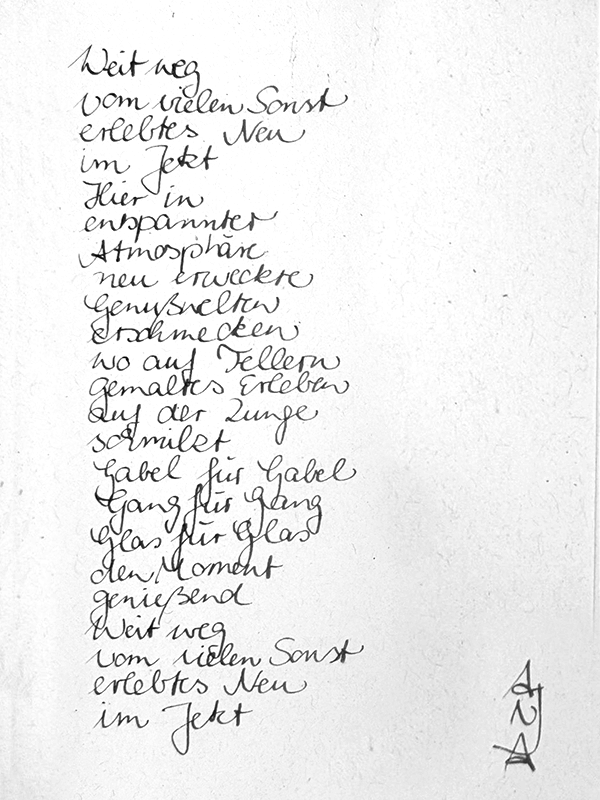 Weit weg
vom vielen Sonst
erlebtes Neu
im Jetzt
Hier in
entspannter
Atmosphäre
neu erweckte
Genußwelten
erschmecken
wo auf Tellern
gemaltes Erleben
auf der Zunge
schmilzt
Gabel für Gabel
Gang für Gang
Glas für Glas
den Moment
genießend
Weit weg
vom vielen Sonst
erlebtes Neu
im Jetzt